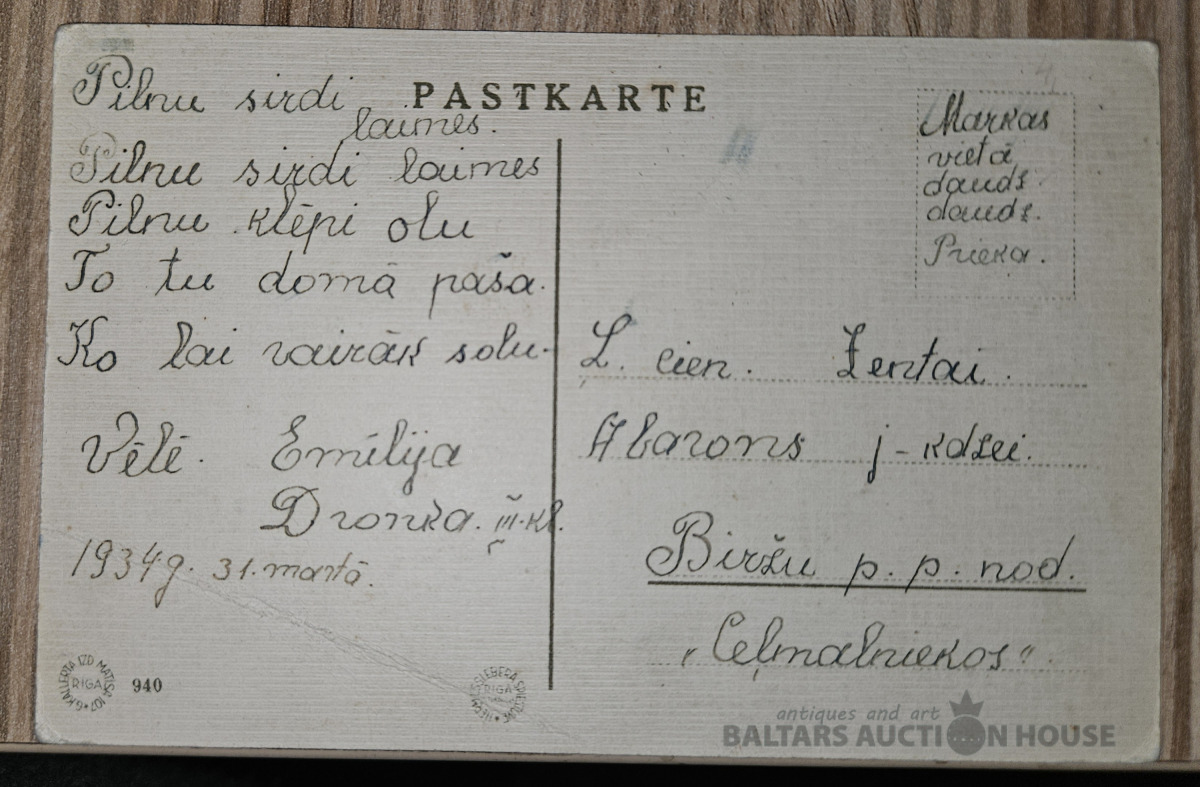 PASTKARTE
Pilnu sirdi
laimes.
Pilnu sirdi laimes
Pilnu klēpi olu
To tu domā paša.
Ko lai vairāk solu.
Vēlē. Emīlija
III. kl.
1934 g. 31. martā.
Markas
vietā
daudz
daudz.
Prieka.
Ļ. cien. Zentai.
Abarons j-kdzei.
Biržu p. p. nod.
„Ceļmalniekos“
G. KALLERTA IZD. MATĪSA 107
RIGA
940
RIGA
antiques and art
BALTARS AUCTION HOUSE